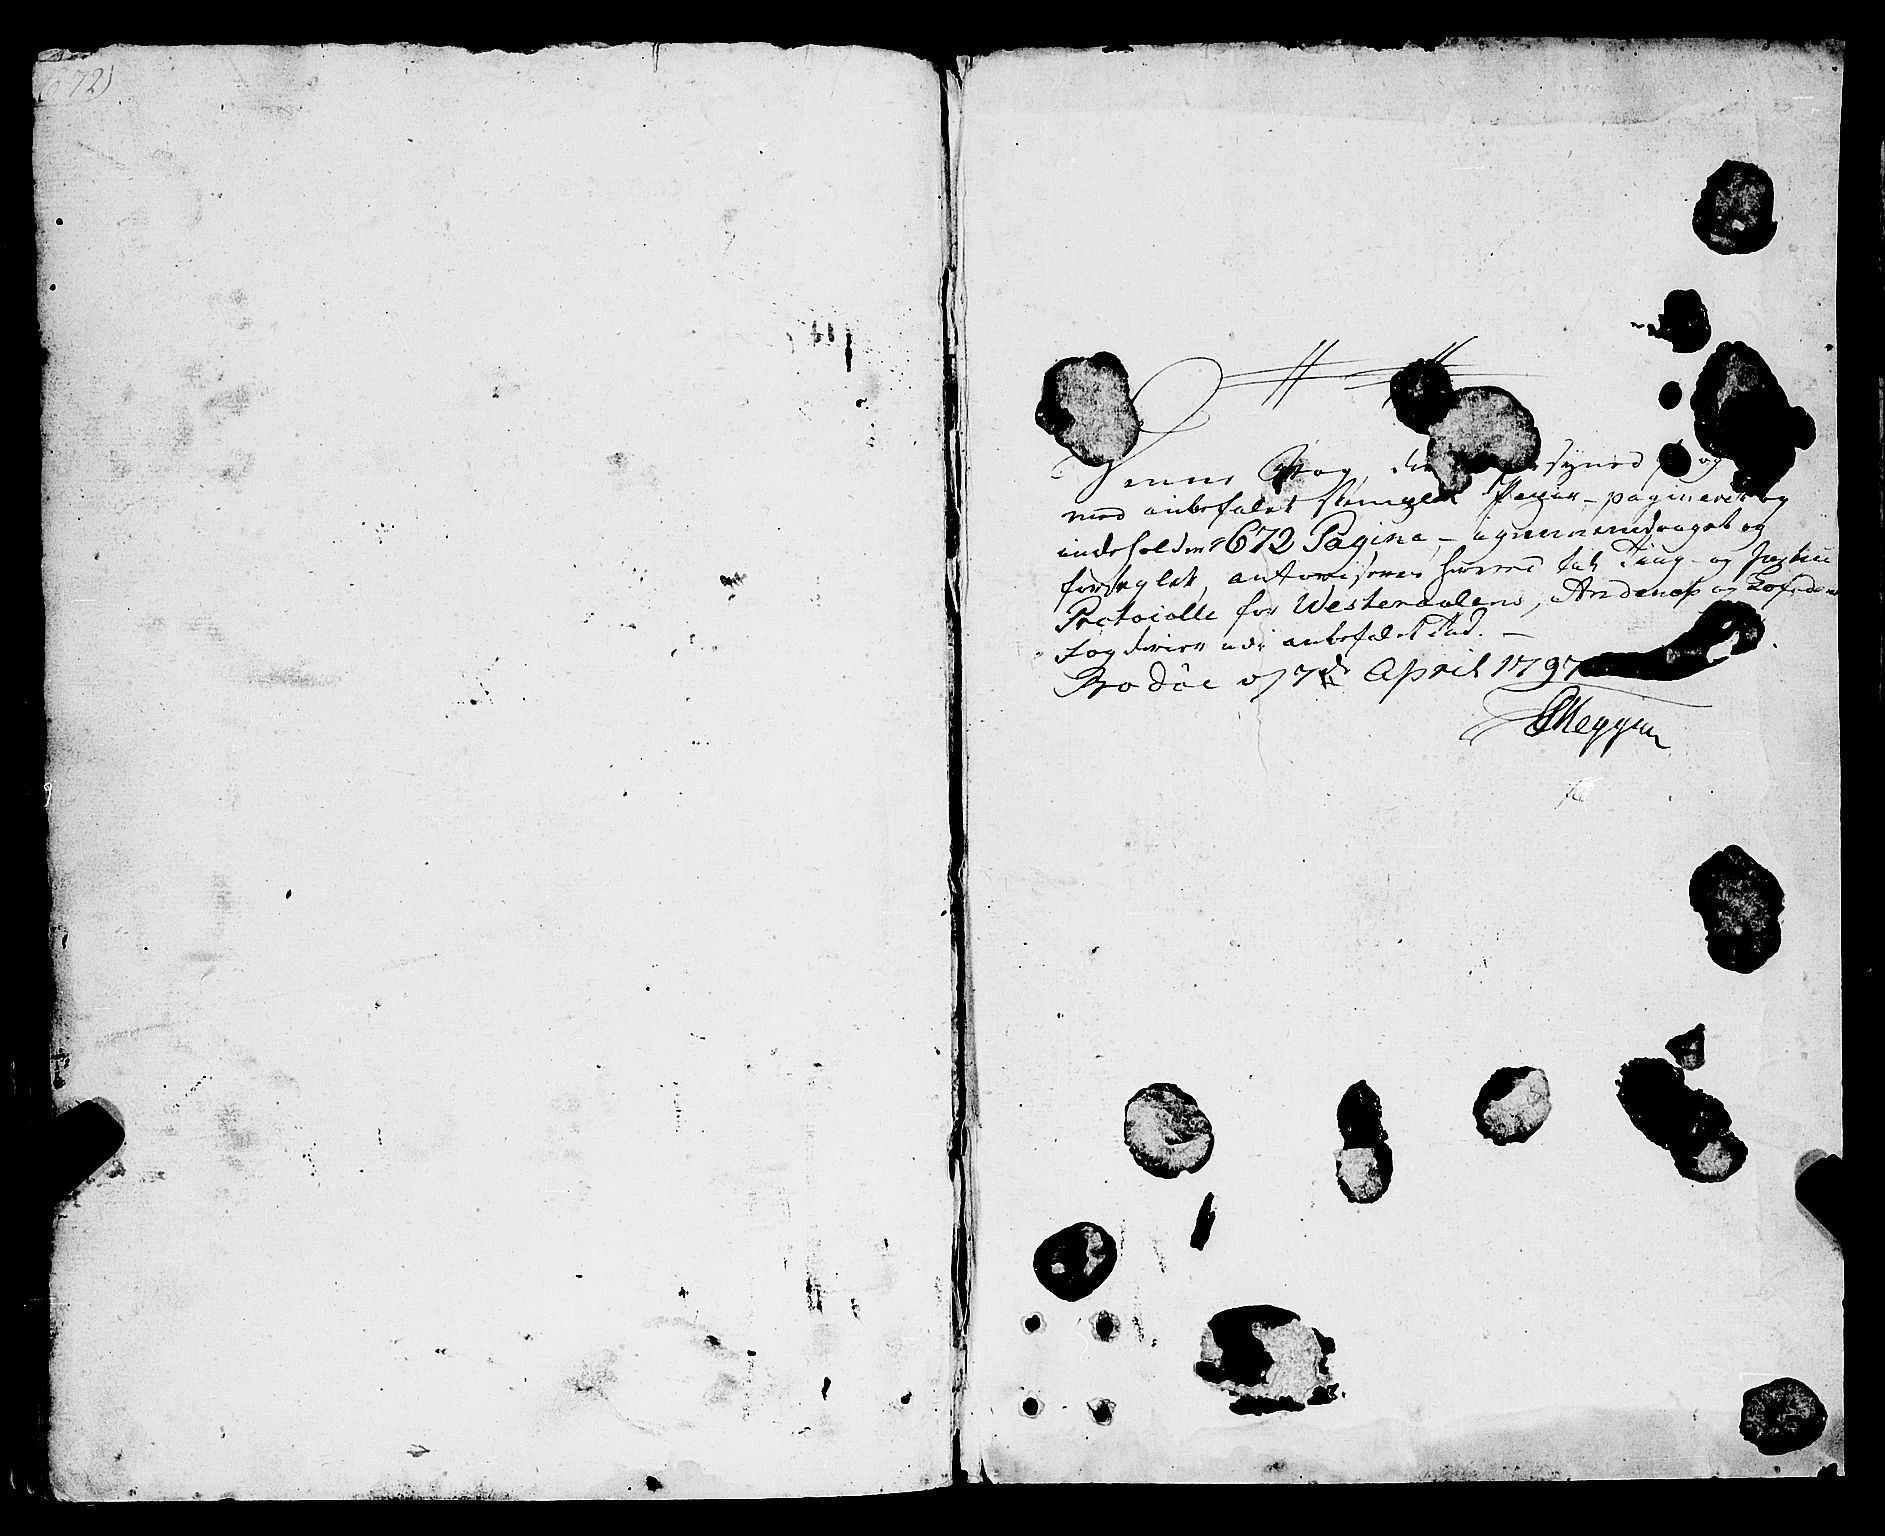 672)
Denne Bog, syned og
med anbefalet stemplet Papir, pagineret og
indeholdene 672 Pagina, - igiennemdraget og
forseglet, autoriseres herved til Ting- og Justice
Protocolle for Westeraalens, Andenes og Lofodens
Fogderier udi anbefalet Tid. -
Bodöe 7de April 1797